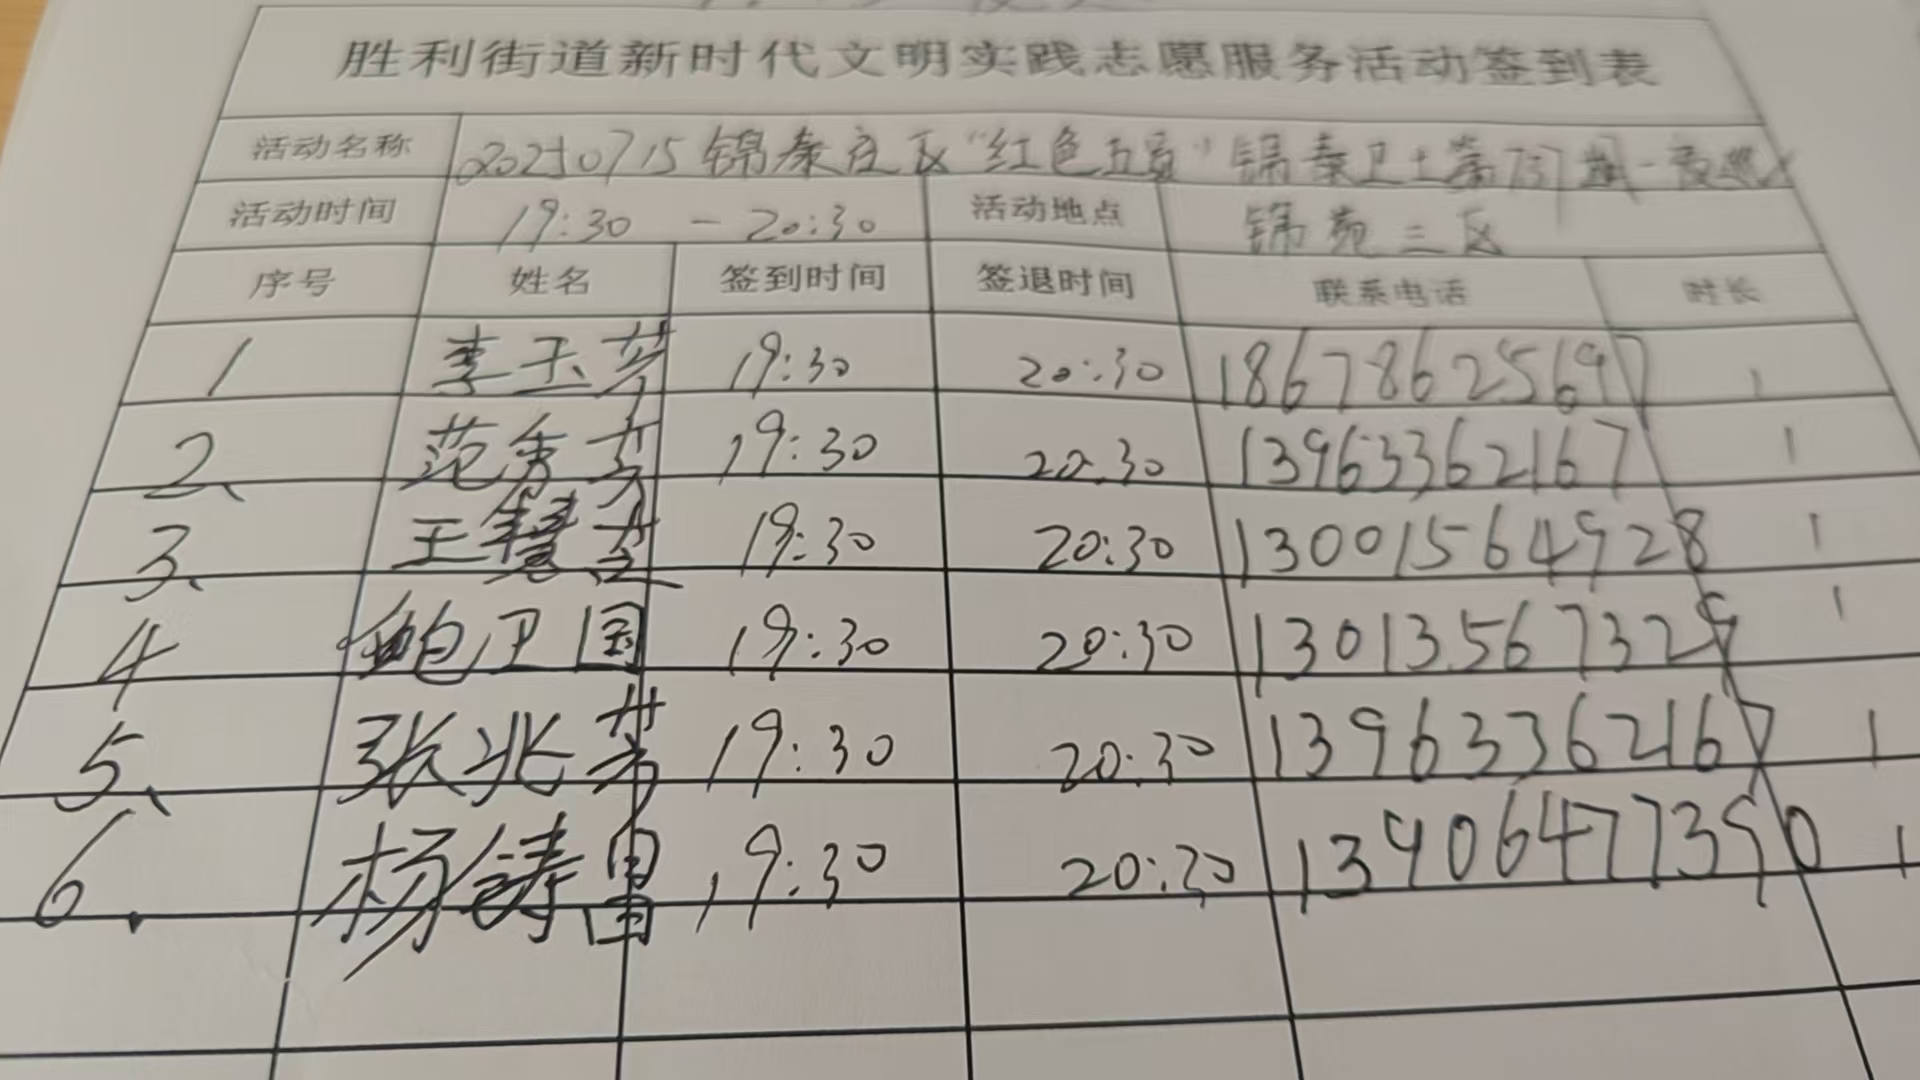 胜利街道新时代文明实践志愿服务活动签到表
活动名称 20250715 锦泰社区"红色五员"锦泰卫士第757期-夜巡
活动时间 19:30 - 20:30 活动地点 锦苑三区
序号 姓名 签到时间 签退时间 联系电话 时长
1 李玉芳 19:30 20:30 18678625697 1
2、 范秀芳 19:30 20:30 13963362167 1
3、 王慧 19:30 20:30 13001564928 1
4 鲍卫国 19:30 20:30 13013567329 1
5、 张兆芳 19:30 20:30 13963362167 1
6. 杨铸 19:30 20:30 13906477390 1